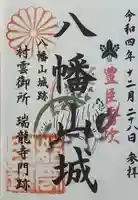 令和四年十二月二十八日参拝
豊臣秀次
八幡山城
八幡山城跡
村雲御所 瑞龍寺門跡